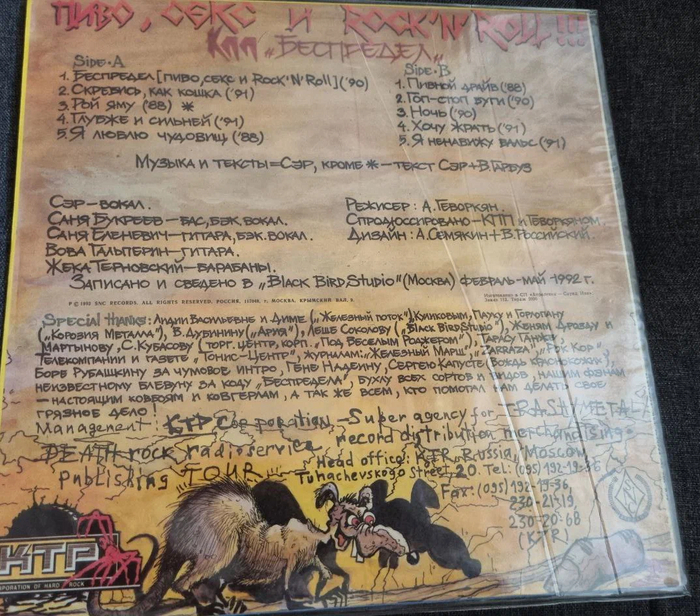 Пиво, секс и Rock'N'Roll!!!
КПП „Беспредел„
Side·A
1. Беспредел [пиво, секс и Rock'N'Roll] ('90)
2. Скребись, как кошка ('91)
3. Рой яму ('88) *
4. Глубже и сильней ('91)
5. Я люблю чудовищ ('88)
Side·B
1. Пивной драйв ('88)
2. Гоп-стоп буги ('90)
3. Ночь ('90)
4. Хочу жрать ('91)
5. Я ненавижу вальс ('91)
Музыка и тексты = Сэр, кроме * – текст Сэр + В. Гарбуз
Сэр – вокал.
Саня Букреев – бас, бэк. вокал.
Саня Еленевич – гитара, бэк. вокал.
Вова Гальперин – гитара.
Жека Терновский – барабаны.
Режисер: А. Геворкян.
Спродюссировано – КПП и Геворкяном
Дизайн: А. Семякин + В. Российский.
Записано и сведено в „Black Bird Studio" (Москва) февраль-май 1992 г.
℗ © 1992 SNC RECORDS. ALL RIGHTS RESERVED. РОССИЯ, МОСКВА, КРЫМСКИЙ ВАЛ,
Special thanks: Лидии Васильевне и Диме („Железный поток") Клинковым, Пауку и
(„Коррозия Металла"), В. Дубинину („Ария"), Лёше Соколову („Black Bird Studio"), Женям Дрозду и
Мартынову, С. Кубасову (торг. центр, корп. „Под Веселым Роджером"), Тарасу
Телекомпании и газете „Тонис-Центр", журналам: „Железный Марш", „Zarraza", „Рок Кор",
Боре Рубашкину за чумовое интро, Гене Надеину, Сергею Капусте (Вождь краснокожих),
неизвестному блевуну за коду „Беспредела", бухлу всех сортов и видов, нашим фэнам
– настоящим ковбоям и ковгерлам, а так же всем, кто помогал нам делать своё
грязное дело!
Management: KTR Corporation – Super agency for TRASH, METAL
DEATH rock radioservice record distribution merchandising
publishing TOUR
Head office: KTR Russia, Moscow,
Tuhachevskogo Street, 20. Tel: (095) 192-19-36
Fax: (095) 192-19-36,
230-21-19,
230-20-68
(KTR)
KTR
CORPORATION OF HARD ROCK